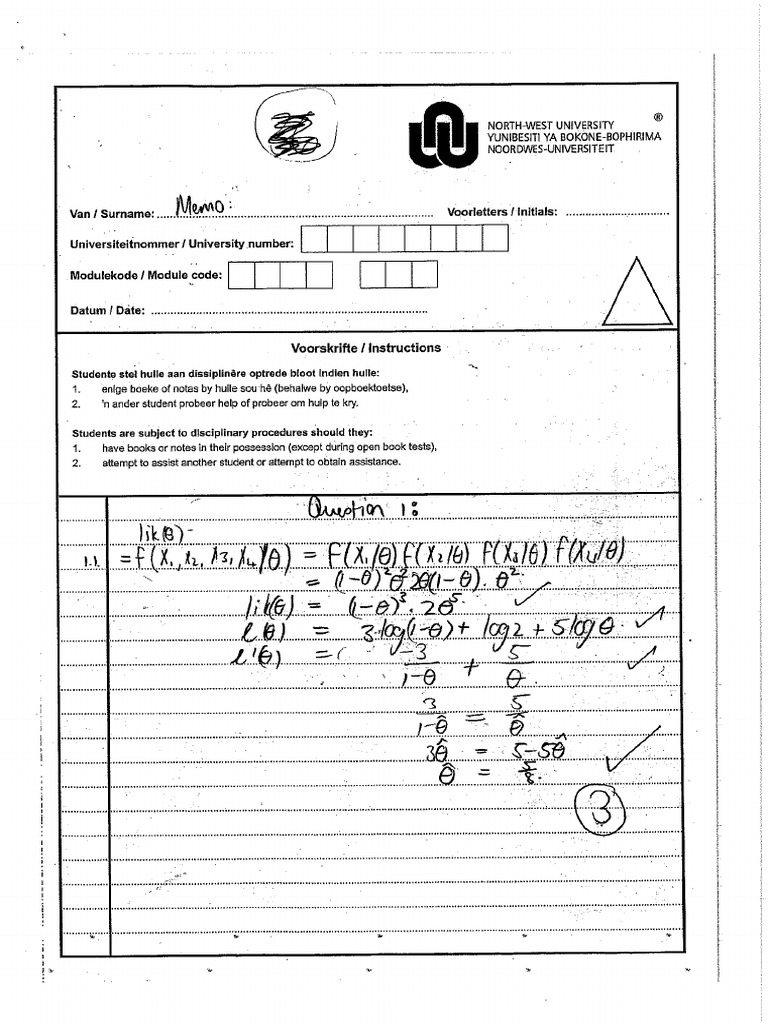 NORTH-WEST UNIVERSITY ®
YUNIBESITI YA BOKONE-BOPHIRIMA
NOORDWES-UNIVERSITEIT
Van / Surname: Memo: Voorletters / Initials:
Universiteitnommer / University number:
Modulekode / Module code:
Datum / Date:
Voorskrifte / Instructions
Studente stel hulle aan dissiplinêre optrede bloot indien hulle:
1. enige boeke of notas by hulle sou hê (behalwe by oopboektoetse),
2. 'n ander student probeer help of probeer om hulp te kry.
Students are subject to disciplinary procedures should they:
1. have books or notes in their possession (except during open book tests),
2. attempt to assist another student or attempt to obtain assistance.
Question 1:
lik(θ)
1.1. = f(X₁, X₂, X₃, X₄/θ) = f(X₁/θ) f(X₂/θ) f(X₃/θ) f(X₄/θ)
= (1-θ)²θ²2θ(1-θ).θ²
lik(θ) = (1-θ)³.2θ⁵ ✓
l(θ) = 3.log(1-θ) + log2 + 5logθ. ✓
l'(θ) = -3/(1-θ) + 5/θ. ✓
3/(1-θ̂) = 5/θ̂
3θ̂ = 5-5θ̂
θ̂ = 5/8. ✓
3